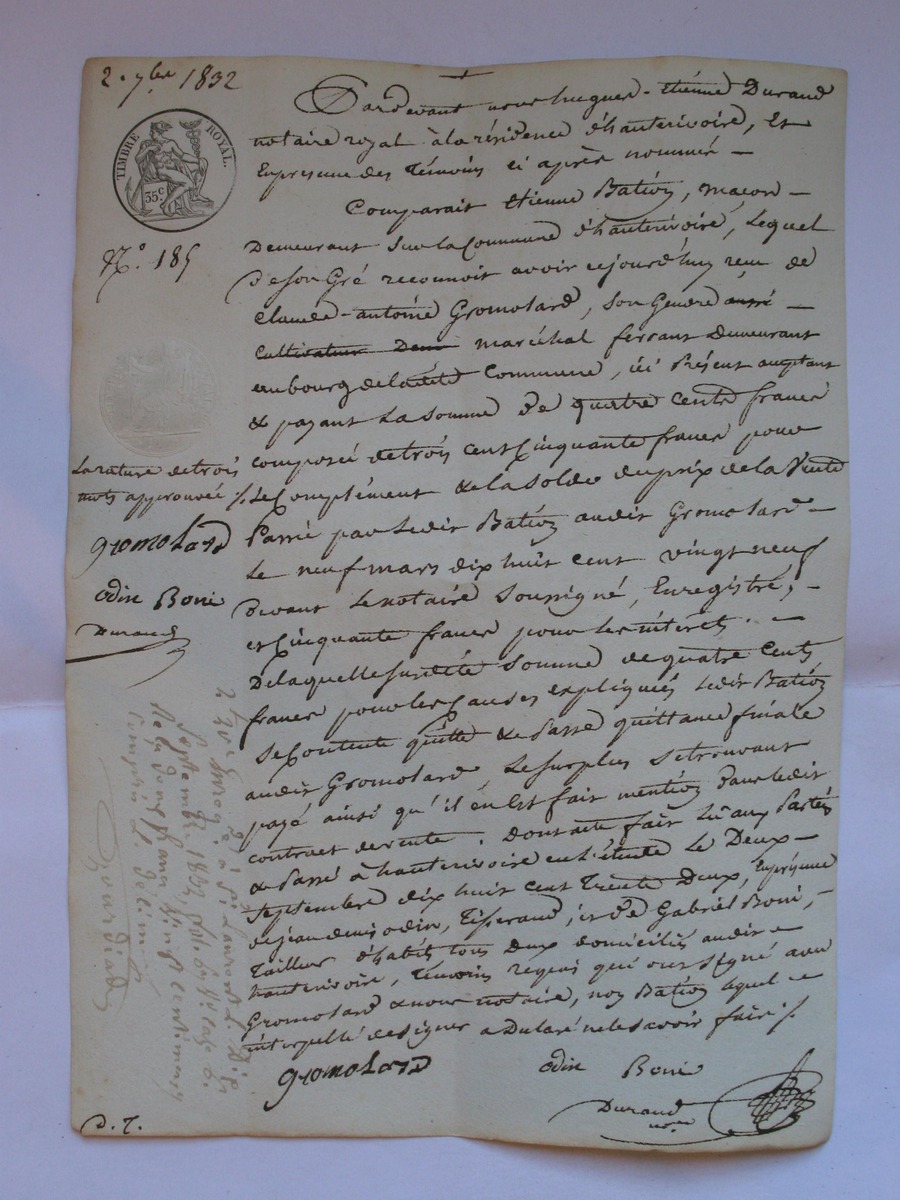 2. 7bre 1832
TIMBRE ROYAL.
35 c
N.o 185
Pardevant nous hugues-etiénne Durand
notaire royal à la résidence d'hauterivoire, Et
En présence des Témoins ci après nommés —
Comparait etienne Bation, maçon —
Demeurant sur la Commune d'hauterivoire, Lequel
De son Gré reconnoit avoir cejourd'huy reçu de
Claude-antoine Gromolard, son Gendre aussi —
Cultivateur Deme maréchal ferrant demeurant
au bourg de ladite Commune, ici présent acceptant
& payant La somme de quatre cents francs
composée de trois cent Cinquante francs pour
Le Complément & la solde du prix de la Vente
Passée par Ledit Bation audit Gromolard —
Le neuf mars dix huit cent vingt neuf
devant Le notaire soussigné, Enregistré, —
et Cinquante francs pour les intérêts. —
De laquelle susdite somme de quatre Cents
francs pour les Causes expliquées Ledit Bation
Se Contente quitte & Passe quittance finale
audit Gromolard, Le surplus se trouvant
payé ainsi qu'il en Est fait mention dans Ledit
contract de vente. Dont acte fait Lu aux Parties
& Passé à hauterivoire en L'étude Le Deux —
Septembre dix huit cent Trente Deux, En présence
de jean denis odin, Tisserand, et de Gabriel Boni, —
Tailleur d'habits tous deux domiciliés audit —
hauterivoire, Témoins requis qui ont signé avec
Gromolard & nous notaire, non Bation lequel —
interpellé de signer a Déclaré ne le savoir faire ./.
La rature de trois
mots approuvée ./.
gromolard
odin Boni
Durand
Septembre 1832
gromolard
odin Boni
Durand
nore
D. T.